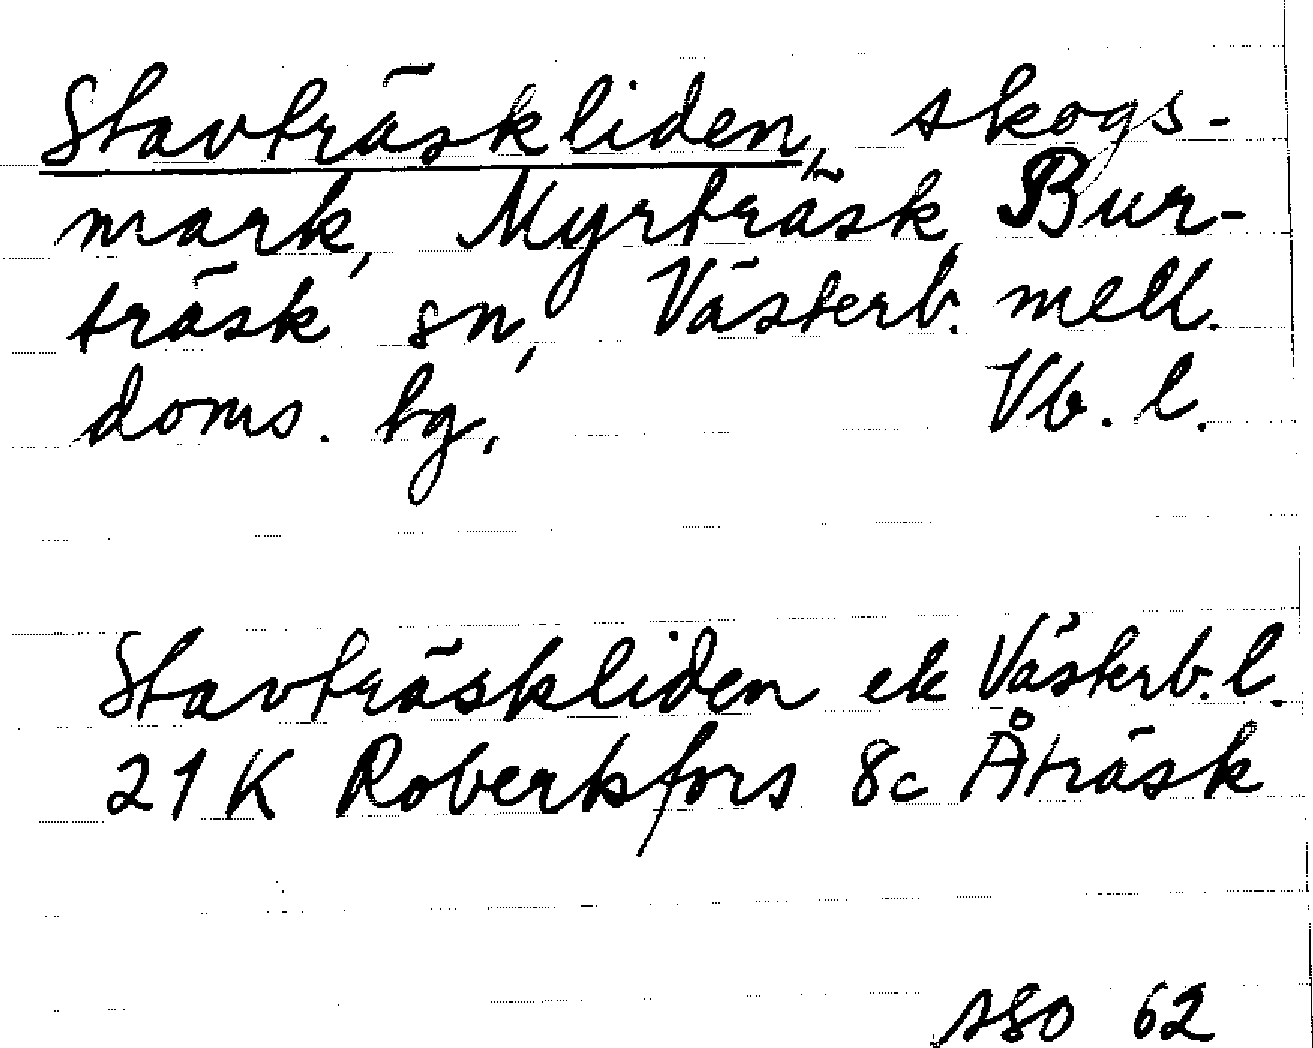 Stavträskliden, skogs-
mark, Myrträsk, Bur-
träsk sn, Västerb. mell.
doms. tg. Vb. l.
Stavträskliden ek Västerb. l.
21 K Robertsfors 8c Åträsk
SSO 62